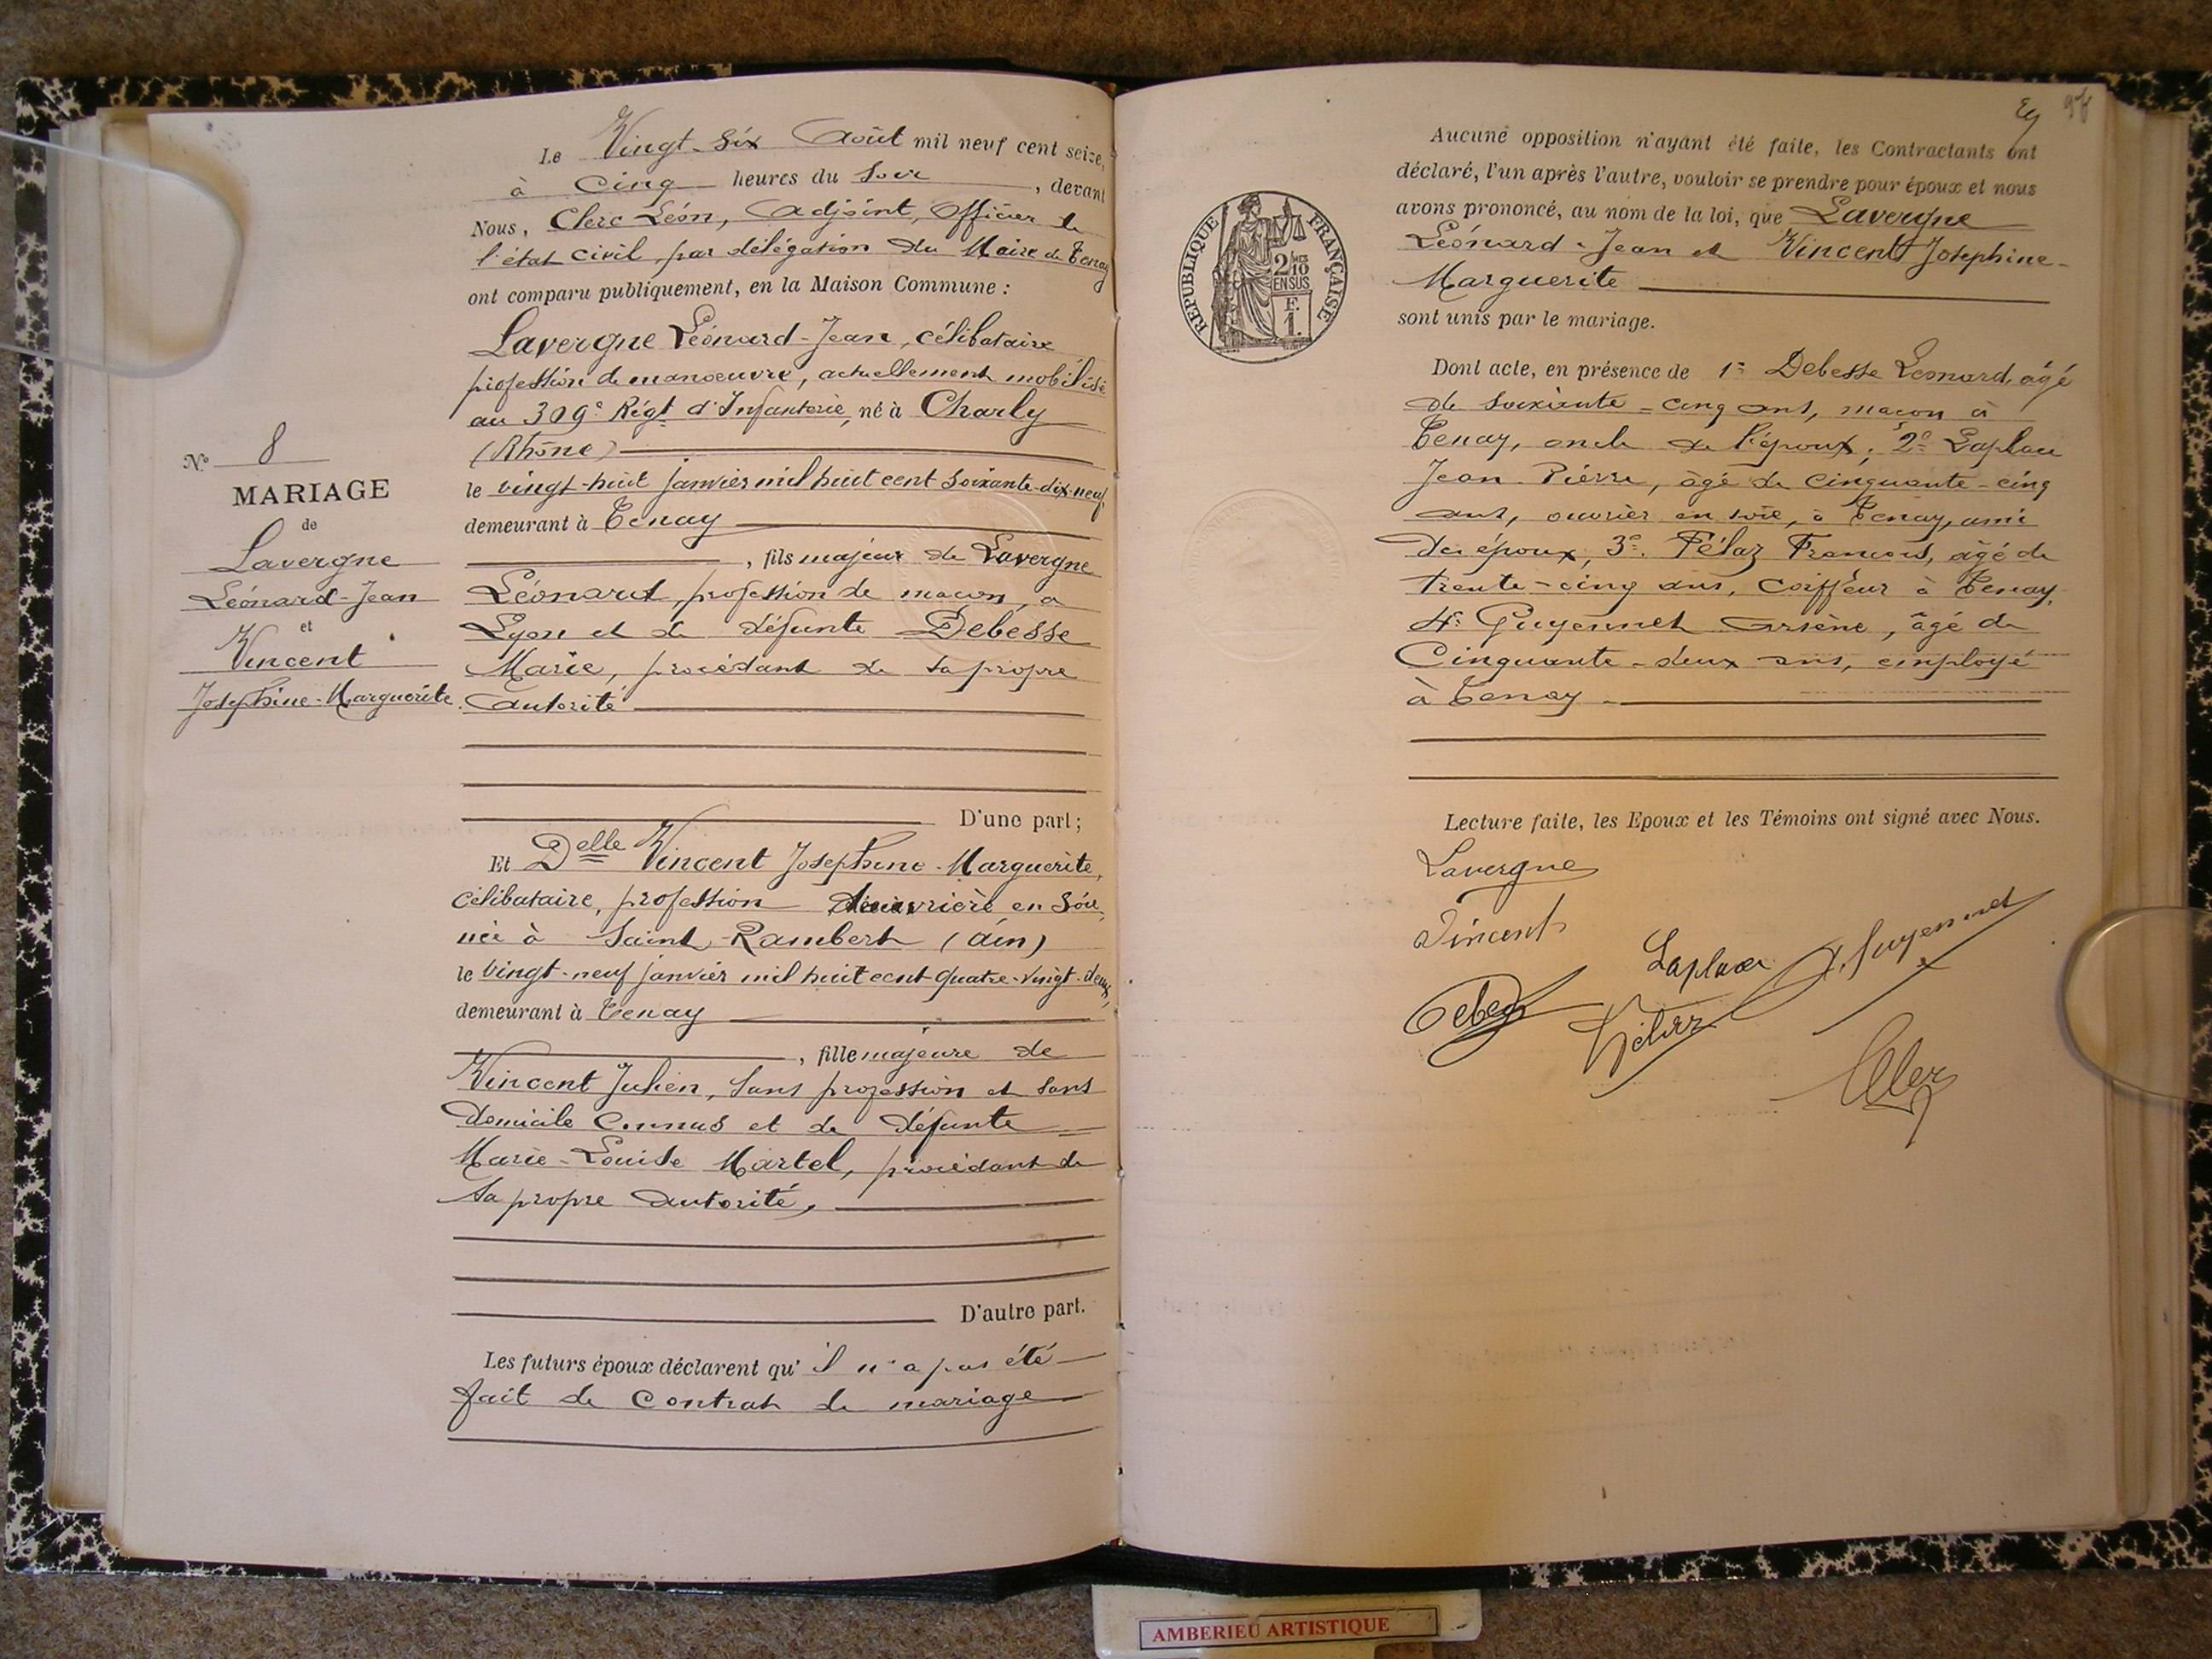 Le Vingt-Six Août mil neuf cent seize,
à Cinq heures du Soir, devant
Nous, Clerc Léon, Adjoint, Officier de
l'état civil, par délégation du Maire de Tenay
ont comparu publiquement, en la Maison Commune :
Lavergne Léonard-Jean, célibataire
profession de manoeuvre, actuellement mobilisé
au 309e Régt d'Infanterie, né à Charly
(Rhône)
le vingt-huit janvier mil huit cent soixante-dix-neuf,
demeurant à Tenay
, fils majeur de Lavergne
Léonard, profession de maçon, a
Lyon et de défunte Debesse
Marie, procédant de sa propre
autorité
D'une part;
Et Delle Vincent Josephine-Marguerite,
célibataire, profession d'ouvrière en soie,
née à Saint-Rambert (Ain)
le vingt-neuf janvier mil huit cent quatre-vingt-deux,
demeurant à Tenay
, fille majeure de
Vincent Julien, sans profession et sans
domicile connus et de défunte
Marie-Louise Martel, procédant de
sa propre autorité,
D'autre part.
Les futurs époux déclarent qu'il n'a pas été
fait de contrat de mariage
N° 8
MARIAGE
de
Lavergne
Léonard-Jean
et
Vincent
Josephine-Marguerite
Aucune opposition n'ayant été faite, les Contractants ont
déclaré, l'un après l'autre, vouloir se prendre pour époux et nous
avons prononcé, au nom de la loi, que Lavergne
Léonard-Jean et Vincent Josephine-
Marguerite
sont unis par le mariage.
Dont acte, en présence de 1° Debesse Léonard, âgé
de soixante-cinq ans, maçon à
Tenay, oncle de l'époux; 2° Laplace
Jean-Pierre, âgé de cinquante-cinq
ans, ouvrier en soie, à Tenay, ami
des époux; 3°. Félaz François, âgé de
trente-cinq ans, coiffeur à Tenay,
4° Guyennet Arsène, âgé de
Cinquante-deux ans, employé
à Tenay
Lecture faite, les Epoux et les Témoins ont signé avec Nous.
Lavergne
Vincent
Laplace
A. Guyennet
Félaz
Clerc
RÉPUBLIQUE FRANÇAISE
2/10
EN SUS
F.
1.
AMBERIEU ARTISTIQUE